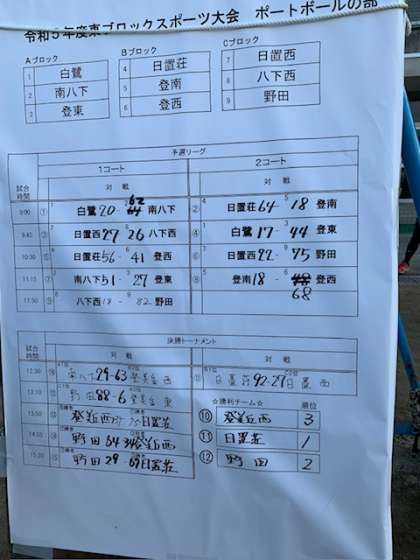 令和5年度東ブロックスポーツ大会 ポートボールの部
Aブロック
1 白鷺
2 南八下
3 登東
Bブロック
4 日置荘
5 登南
6 登西
Cブロック
7 日置西
8 八下西
9 野田
予選リーグ
試合時間 1コート 2コート
対戦 対戦
9:00 ① 白鷺 20 - 62 南八下 ② 日置荘 64 - 18 登南
9:45 ③ 日置西 27 26 八下西 ④ 白鷺 17 - 44 登東
10:30 ⑤ 日置荘 56 - 41 登西 ⑥ 日置西 22 - 75 野田
11:15 ⑦ 南八下 51 - 27 登東 ⑧ 登南 18 - 登西
68
11:50 ⑨ 八下西 18 - 82 野田
決勝トーナメント
対戦 対戦
12:30 ⑩ 南八下 29-63 登美丘西 ⑪ 日置荘 92-27 日置西
野田 88-6 登美丘東
登美丘西 日置荘
野田 64-34 登美丘西
野田 29-69 日置荘
☆勝利チーム☆ 順位
⑩ 登美丘西 3
⑪ 日置荘 1
⑫ 野田 2